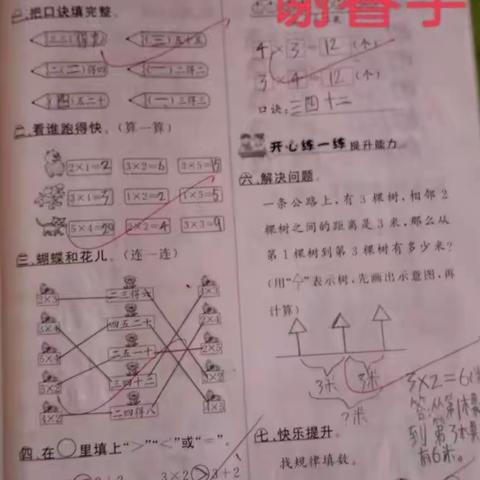 一、把口诀填完整。
(三)五十五
二(二)得四
(一)二得二
(四)五二十
(一)三得三
二、看谁跑得快。(算一算)
2×1=2 3×2=6 3×5=15
3×1=3 1×2=2 1×5=5
5×4=20 2×2=4 3×3=9
三、蝴蝶和花儿。(连一连)
2×3 二三得六
四五二十 2×4
二五一十 2×5
三四十二
二四得八
四、在○里填上“>”“<”或“=”。
3×2>3+2
谢春宇
4×3=12(个)
3×4=12(个)
口诀:三四十二
开心练一练 提升能力
六、解决问题。
一条公路上,有3棵树,相邻2
棵树之间的距离是3米,那么从
第1棵树到第3棵树有多少米?
(用“个”表示树,先画出示意图,再
计算)
3米 3米
?米
3×2=6(米)
答:从第1棵
到第3棵
有6米。
七、快乐提升。
找规律填数。